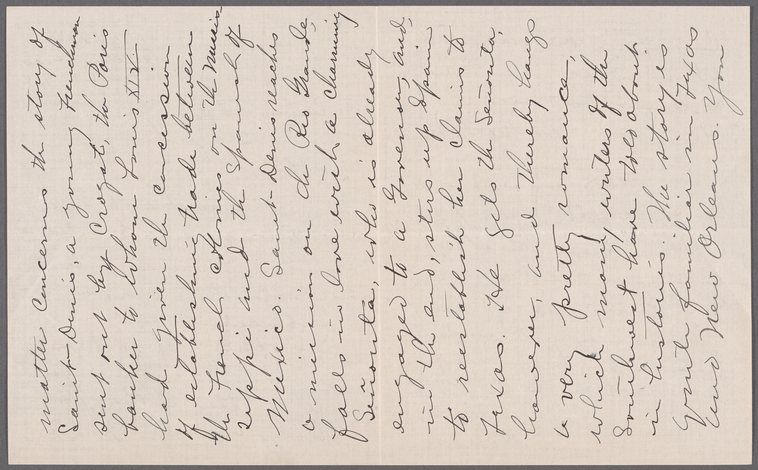 matter concerns the story of
Saint Denis, a young Frenchman
sent out by Crozat, the Paris
banker to whom Louis XIV
had given the concession
of establishing trade between
the French colonies on the Missis
sippi and the Spanish of
Mexico. Saint Denis reaches
a mission on the Rio Grande,
falls in love with a charming
Señorita, who is already
engaged to a Governor, and,
in the end, stirs up Spain
to reestablish her claims to
Texas. He gets the Señorita,
however, and thereby hangs
a very pretty romance,
which many writers of the
Southwest have told about
in histories. The story is
quite familiar in Texas
and New Orleans. You